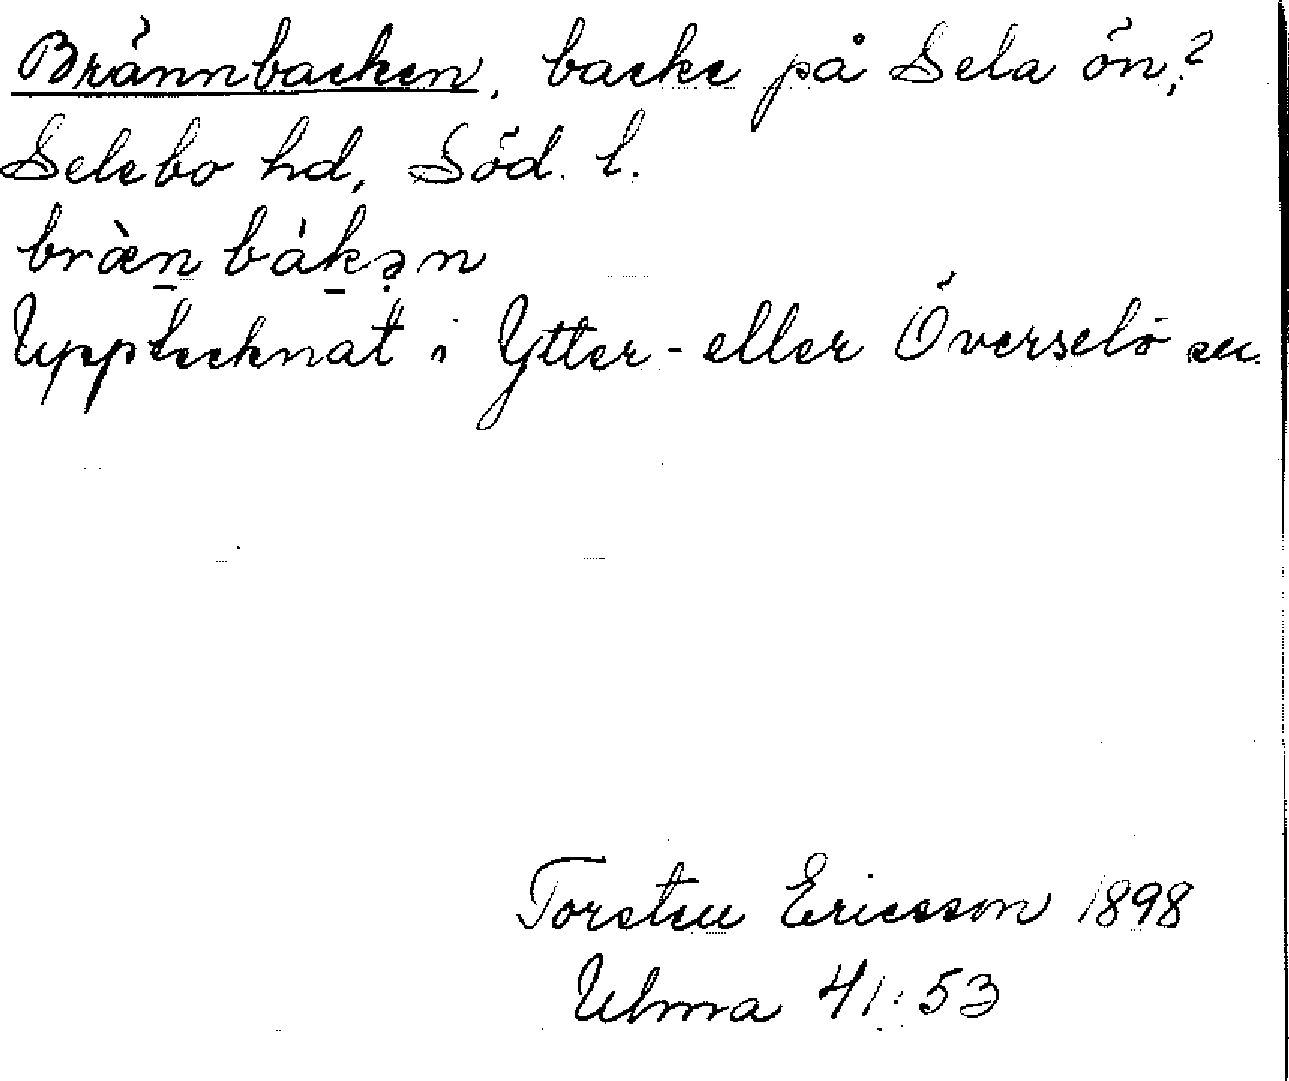 Brännbacken, backe på Sela ön?
Selebo hd, Söd. l.
bræ̀n̲ bàk̲ə̣n
Upptecknat i Ytter- eller Överselö sn.
Torsten Ericsson 1898
Ulma 41:53